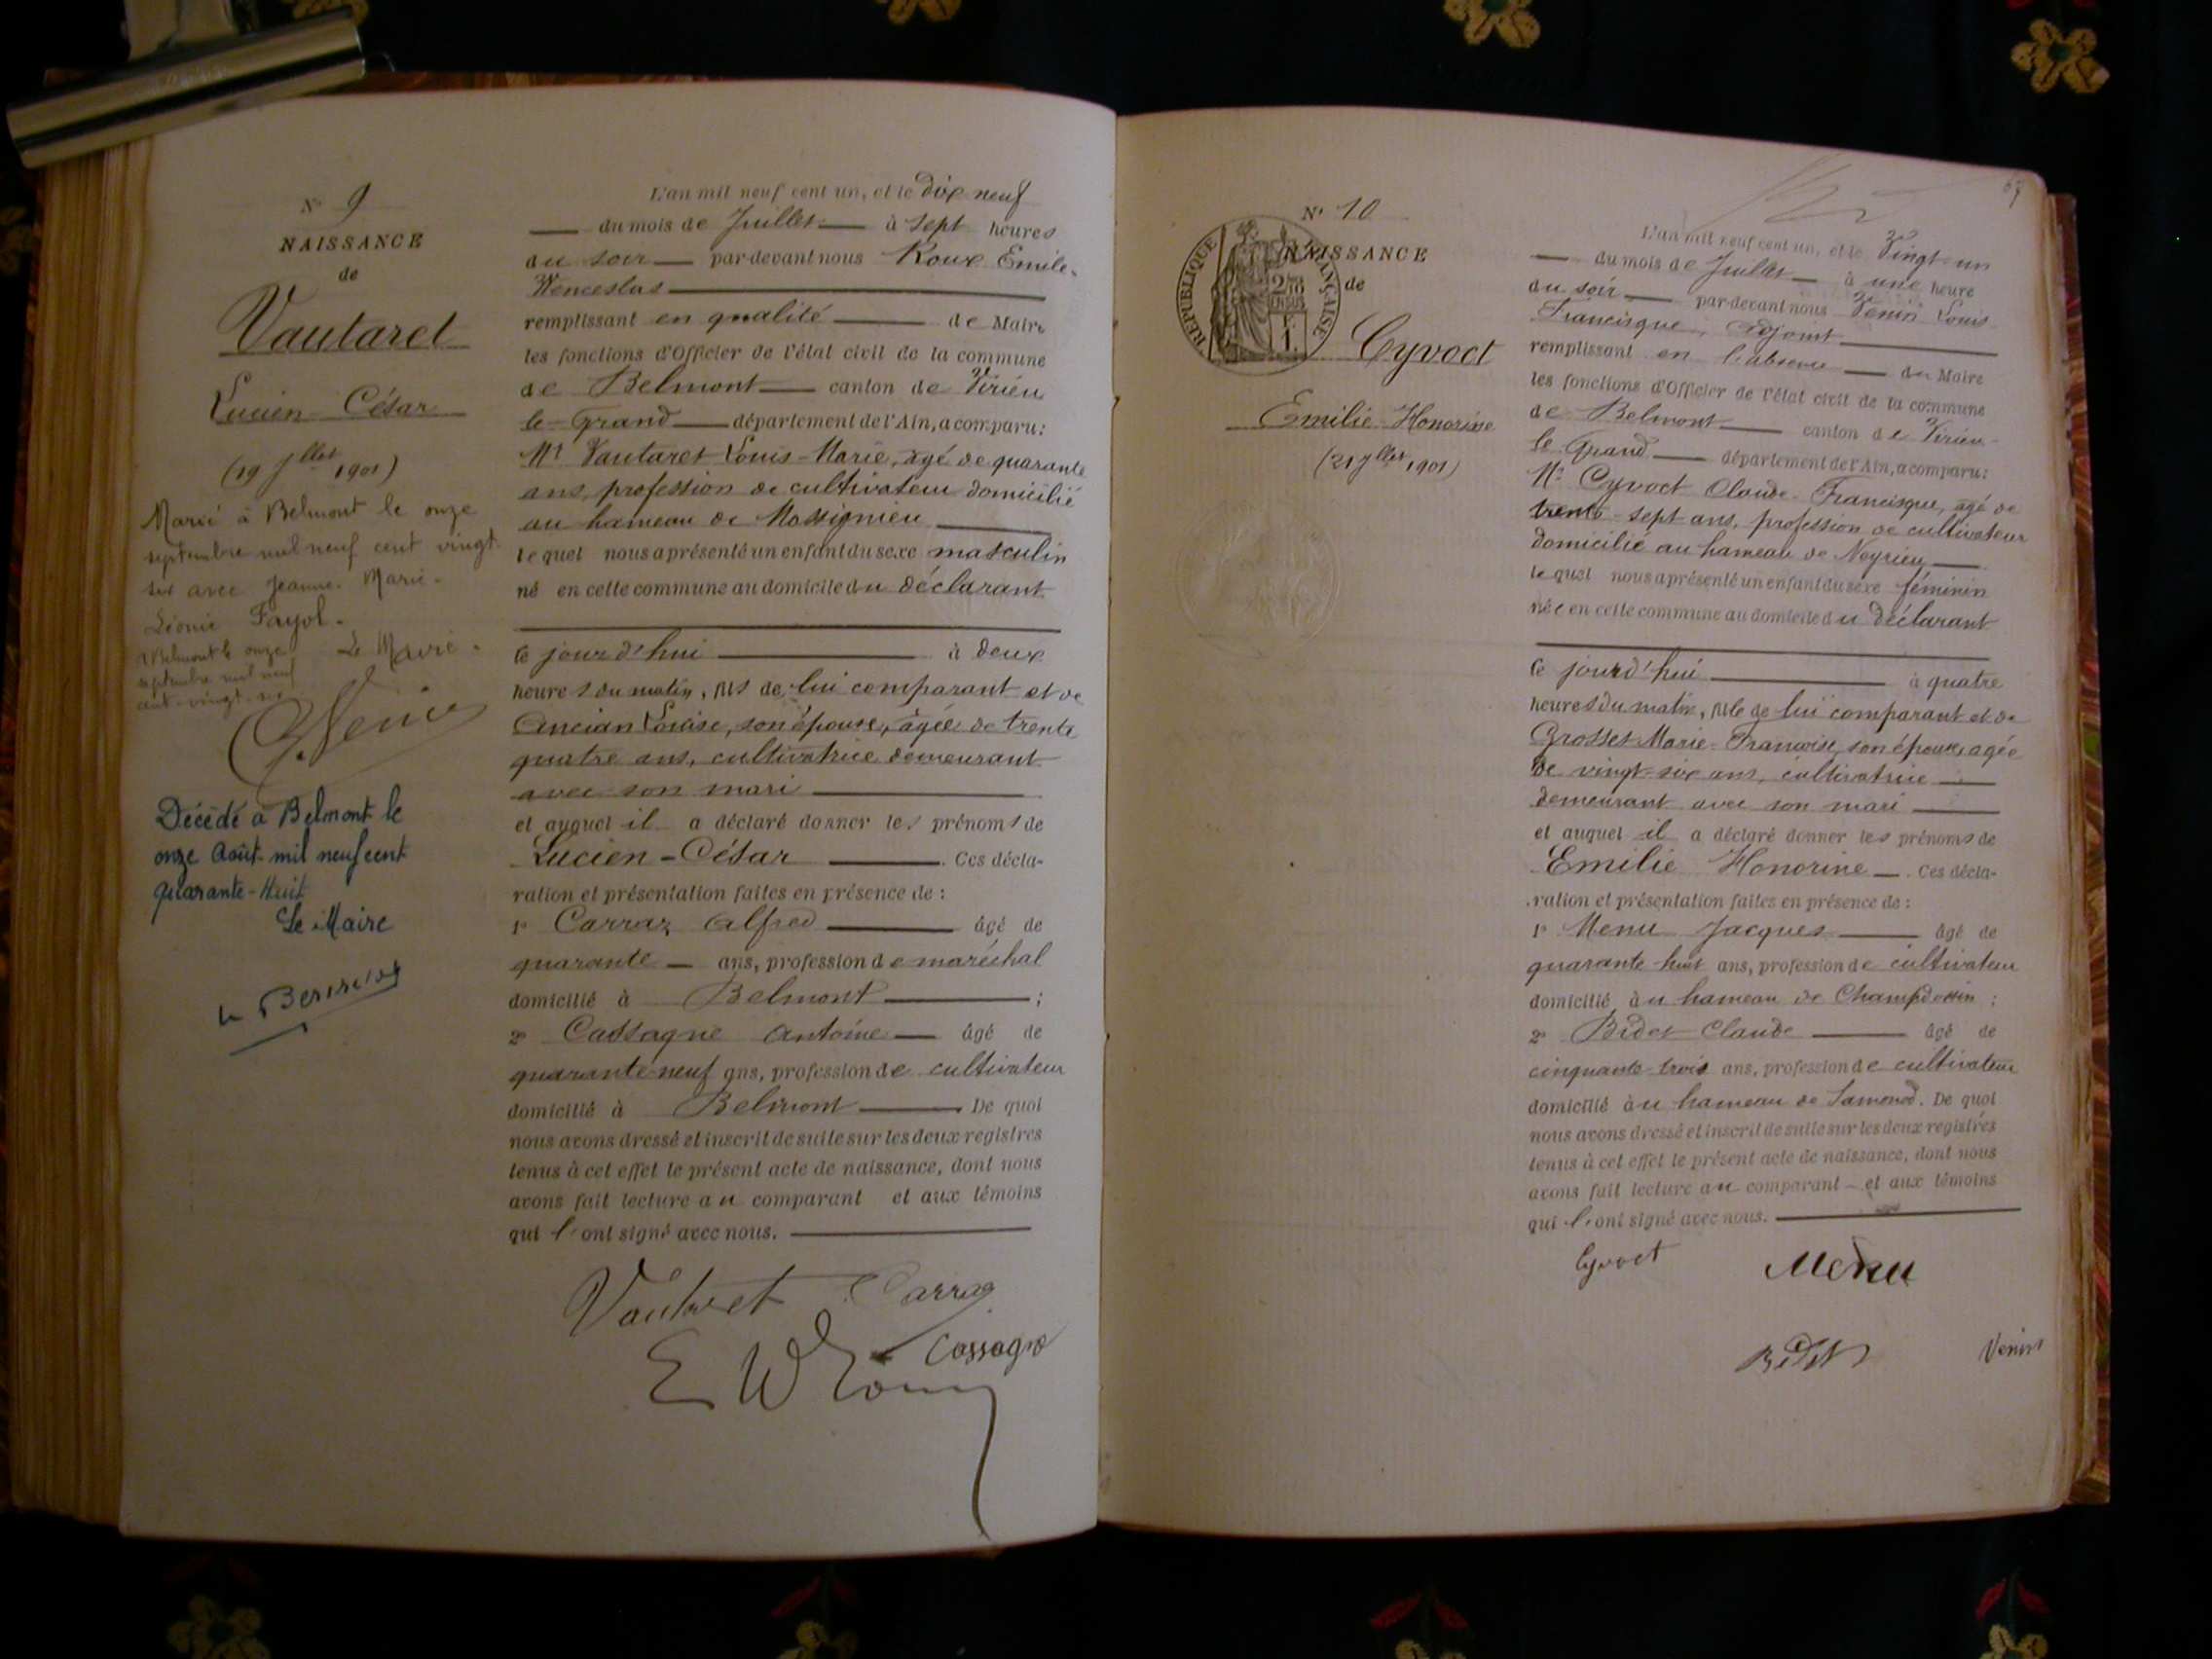 N° 9
NAISSANCE
de
Vautaret
Lucien-César
(19 Jllet 1901)
Marié à Belmont le onze
septembre mil neuf cent vingt-
six avec Jeanne-Marie-
Léonie Fayol.
A Belmont le onze Le Maire.
septembre mil neuf
cent-vingt-six
Décédé à Belmont le
onze Août mil neuf cent
quarante-Huit
Le Maire
L'an mil neuf cent un, et le dix neuf
du mois de Juillet à sept heures
du soir par-devant nous Roux Emile-
Wenceslas
remplissant en qualité de Maire
les fonctions d'Officier de l'état civil de la commune
de Belmont canton de Virieu
le-Grand département de l'Ain, a comparu:
Mr Vautaret Louis-Marie, âgé de quarante
ans, profession de cultivateur domicilié
au hameau de Massignieu
lequel nous a présenté un enfant du sexe masculin
né en cette commune au domicile du déclarant
ce jourd'hui à deux
heures du matin, fils de lui comparant et de
Ancian Louise, son épouse, âgée de trente
quatre ans, cultivatrice demeurant
avec son mari
et auquel il a déclaré donner les prénoms de
Lucien-César. Ces décla-
ration et présentation faites en présence de:
1° Carraz Alfred âgé de
quarante ans, profession de maréchal
domicilié à Belmont ;
2° Cassagne Antoine âgé de
quarante-neuf ans, profession de cultivateur
domicilié à Belmont De quoi
nous avons dressé et inscrit de suite sur les deux registres
tenus à cet effet le présent acte de naissance, dont nous
avons fait lecture au comparant et aux témoins
qui l'ont signé avec nous.
Vautaret Carraz
Cassagne
E W Roux
N° 10
NAISSANCE
de
RÉPUBLIQUE FRANÇAISE
Cyvoct
Emilie-Honorine
(21 Jllet 1901)
L'an mil neuf cent un, et le Vingt-un
du mois de Juillet à une heure
du soir par-devant nous Venin Louis
Francisque, adjoint
remplissant en l'absence du Maire
les fonctions d'Officier de l'état civil de la commune
de Belmont canton de Virieu-
le Grand département de l'Ain, a comparu:
Mr Cyvoct Claude-Francisque, âgé de
trente-sept ans, profession de cultivateur
domicilié au hameau de Neyrieu
lequel nous a présenté un enfant du sexe féminin
née en cette commune au domicile du déclarant
ce jourd'hui à quatre
heures du matin, fille de lui comparant et de
Grosset Marie-Françoise, son épouse, agée
de vingt-six ans, cultivatrice
demeurant avec son mari
et auquel il a déclaré donner les prénoms de
Emilie Honorine. Ces décla-
ration et présentation faites en présence de:
1° Menu Jacques âgé de
quarante-huit ans, profession de cultivateur
domicilié au hameau de Champdossin;
2° Bidet Claude âgé de
cinquante-trois ans, profession de cultivateur
domicilié au hameau de Samonod. De quoi
nous avons dressé et inscrit de suite sur les deux registres
tenus à cet effet le présent acte de naissance, dont nous
avons fait lecture au comparant et aux témoins
qui l'ont signé avec nous.
Cyvoct Menu
Bidet Venin